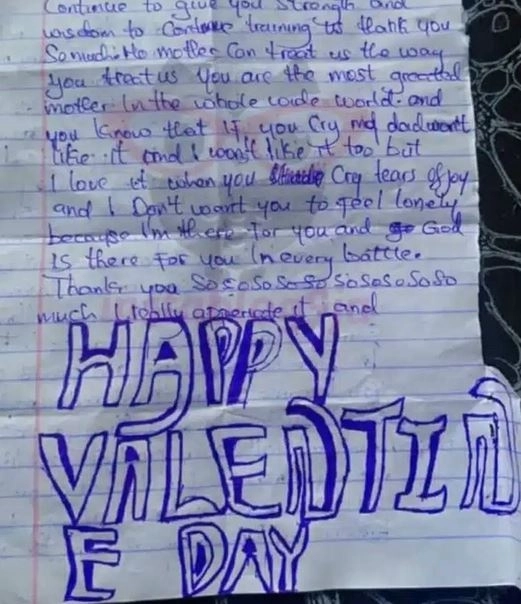 Continue to give you strength and
wisdom to Continue training us thank you
So much. No mother Can treat us the way
you treat us you are the most greatest
mother In the whole wide world. and
you know that if you Cry my dad won't
like it and I won't like it too but
I love it when you Cry tears of joy
and I Don't want you to feel lonely
because I'm there for you and God
Is there For you In every battle.
Thank you SosoSoSoSoSoSoSoSoSo
much I really appreciate it and
HAPPY
VALENTIN
E DAY